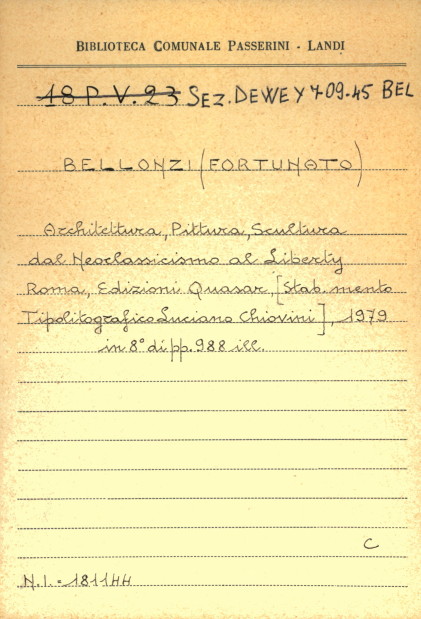 BIBLIOTECA COMUNALE PASSERINI - LANDI
18 P.V. 23 SEZ. DEWEY 709.45 BEL
BELLONZI (FORTUNATO)
Architettura, Pittura, Scultura
dal Neoclassicismo al Liberty
Roma, Edizioni Quasar, [Stab. mento
Tipolitografico Luciano Chiovini], 1979
in 8° di pp. 988 ill.
C
N.I. = 181144